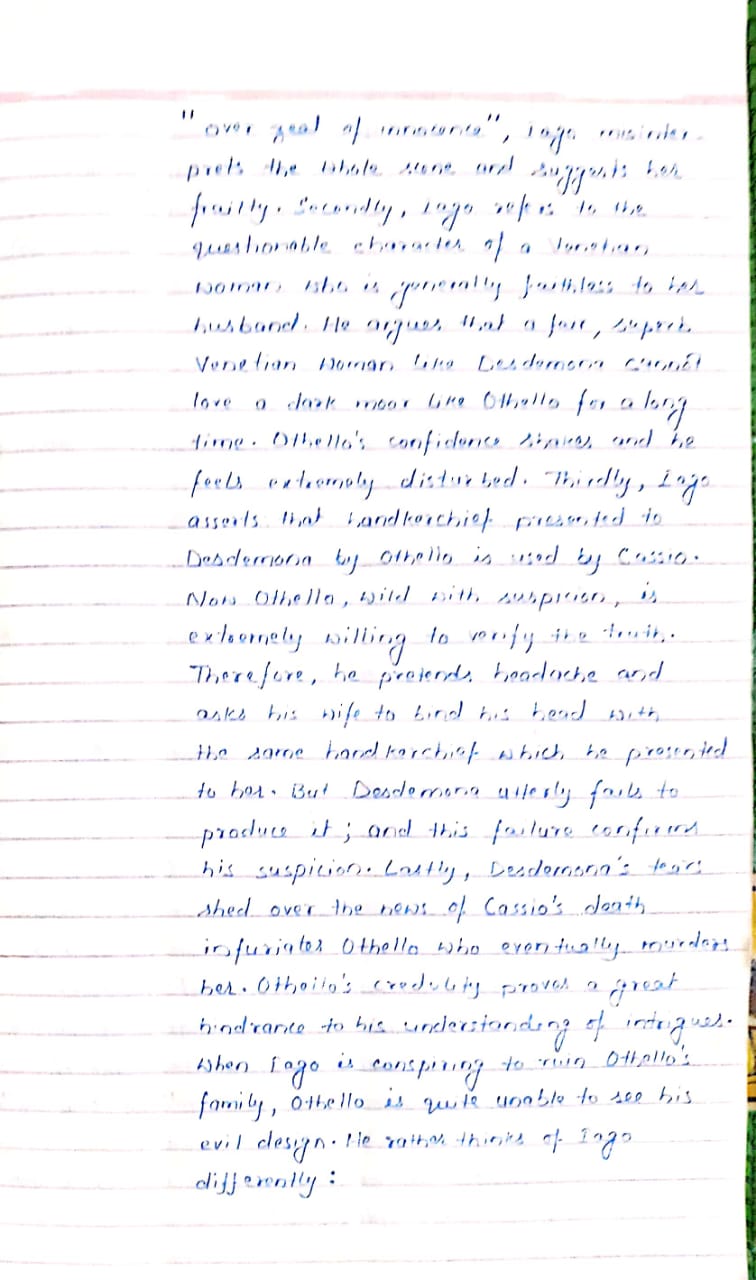 "over zeal of innocence", iago misinter-
prets the whole scene and suggests her
frailty. Secondly, iago refers to the
questionable character of a Venetian
woman who is generally faithless to her
husband. He argues that a fair, superb
Venetian woman like Desdemona cannot
love a dark moor like Othello for a long
time. Othello's confidence shakes and he
feels extremely disturbed. Thirdly, Iago
asserts that handkerchief presented to
Desdemona by Othello is used by Cassio.
Now Othello, wild with suspicion, is
extremely willing to verify the truth.
Therefore, he pretends headache and
asks his wife to bind his head with
the same handkerchief which he presented
to her. But Desdemona utterly fails to
produce it; and this failure confirms
his suspicion. Lastly, Desdemona's tears
shed over the news of Cassio's death
infuriates Othello who eventually murders
her. Othello's credulity proves a great
hindrance to his understanding of intrigues.
When Iago is conspiring to ruin Othello's
family, Othello is quite unable to see his
evil design. He rather thinks of Iago
differently: